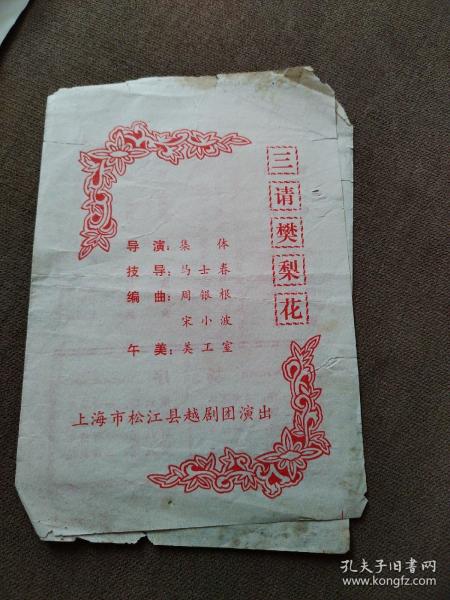 三请樊梨花
导演：集体
技导：马士春
编曲：周银根
宋小波
午美：美工室
上海市松江县越剧团演出
孔夫子旧书网
www.kongfz.com